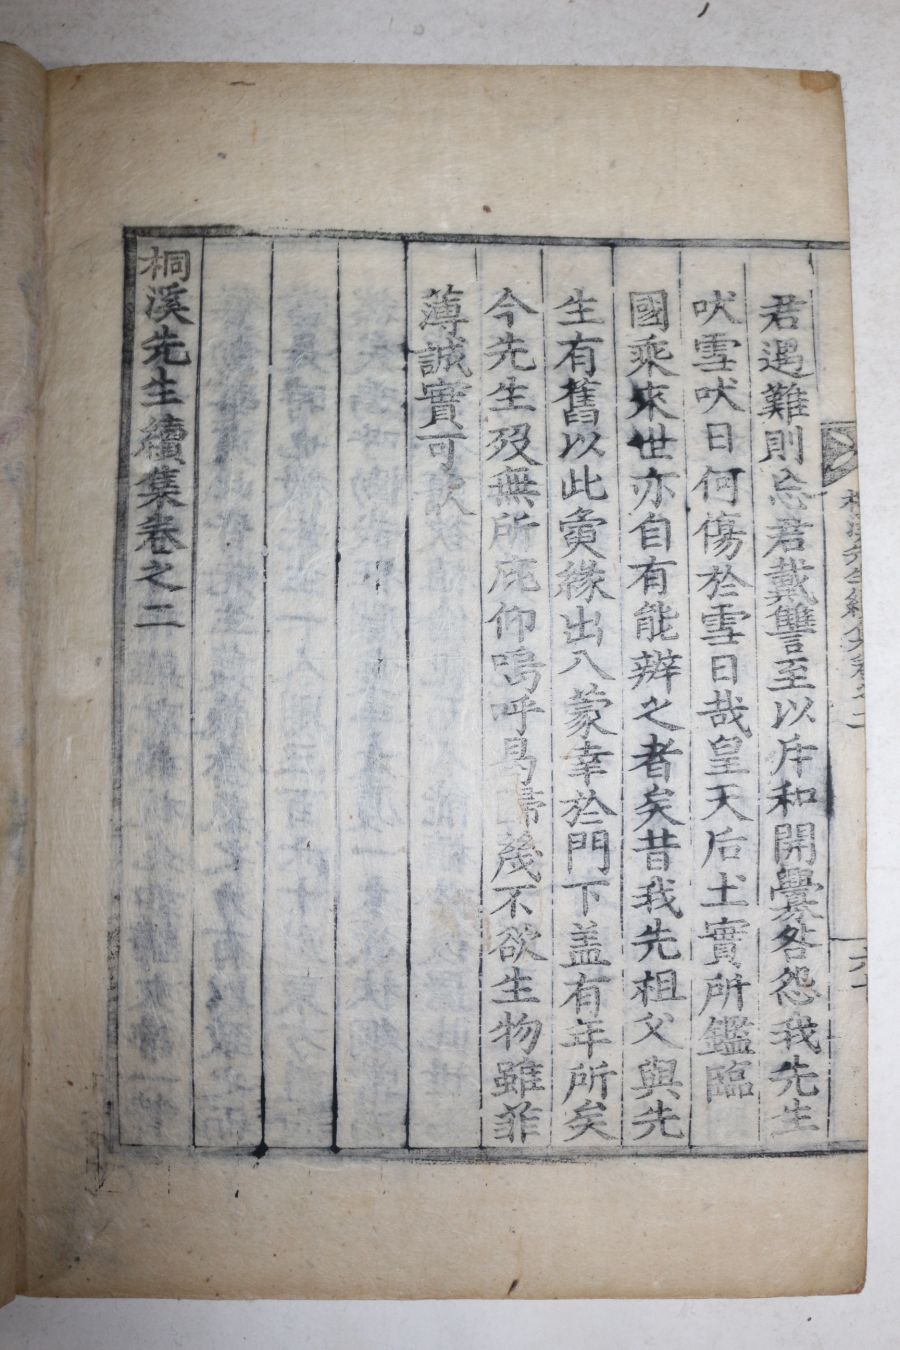 君遇難則忘君戴讐至以斥和開釁咎怨我先生
吠雪吠日何傷於雪日哉皇天后土實所鑑臨
國乘來世亦自有能辨之者矣昔我先祖父與先
生有舊以此夤緣出入蒙幸於門下盖有年所矣
今先生歿無所庇仰嗚呼曷歸幾不欲生物雖菲
薄誠實可
桐溪先生續集卷之二